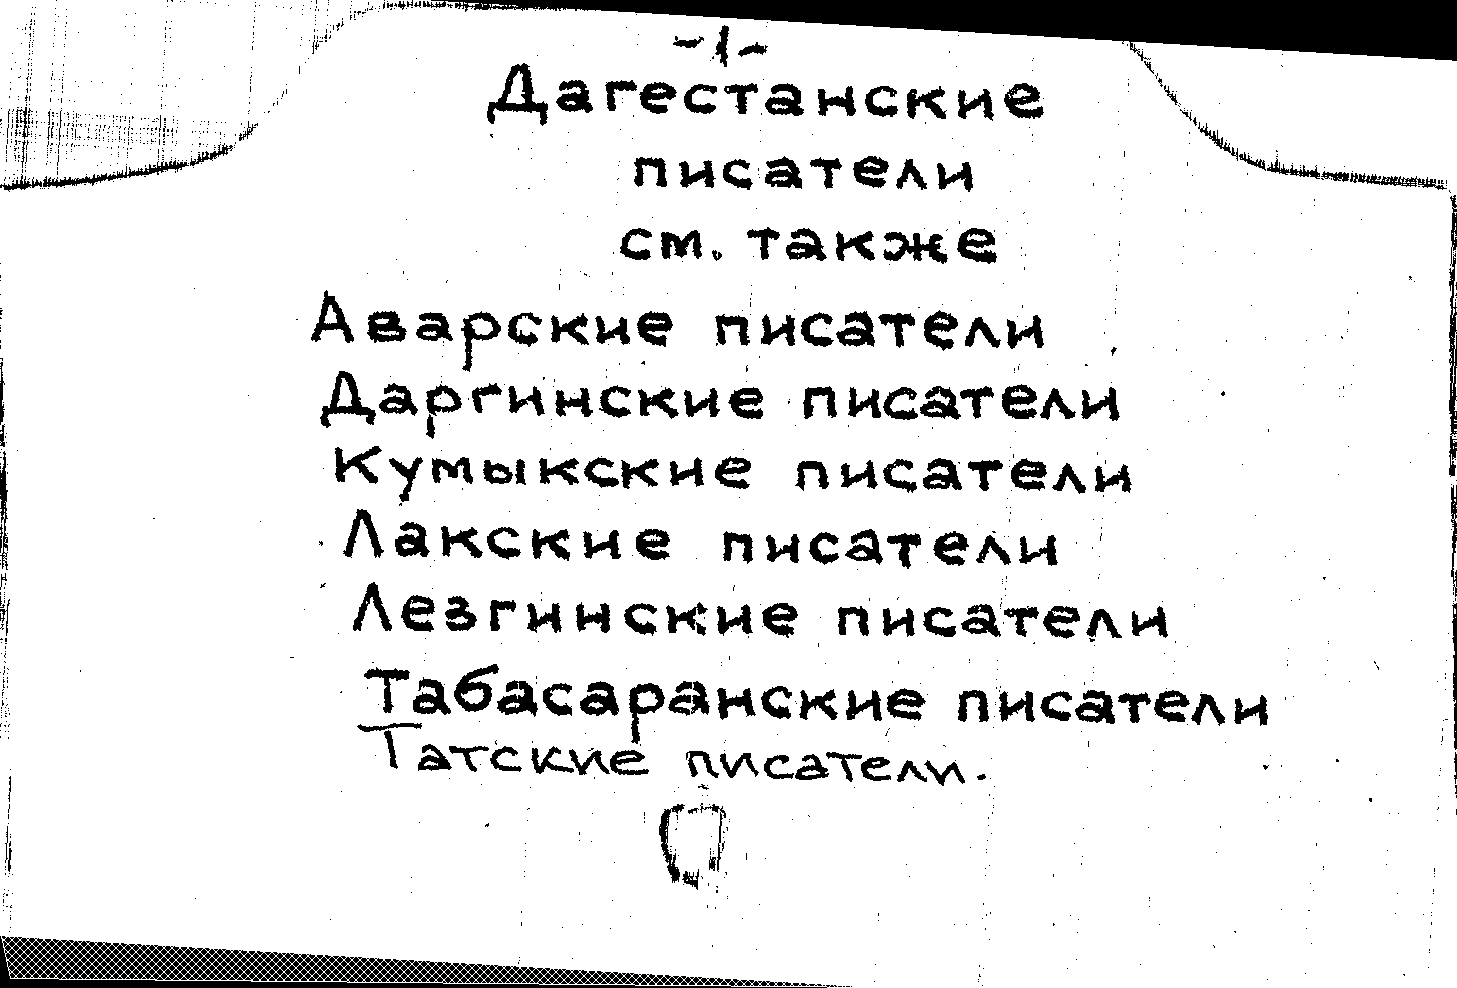 -1-
Дагестанские
писатели
см. также
Аварские писатели
Даргинские писатели
Кумыкские писатели
Лакские писатели
Лезгинские писатели
Табасаранские писатели
Татские писатели.